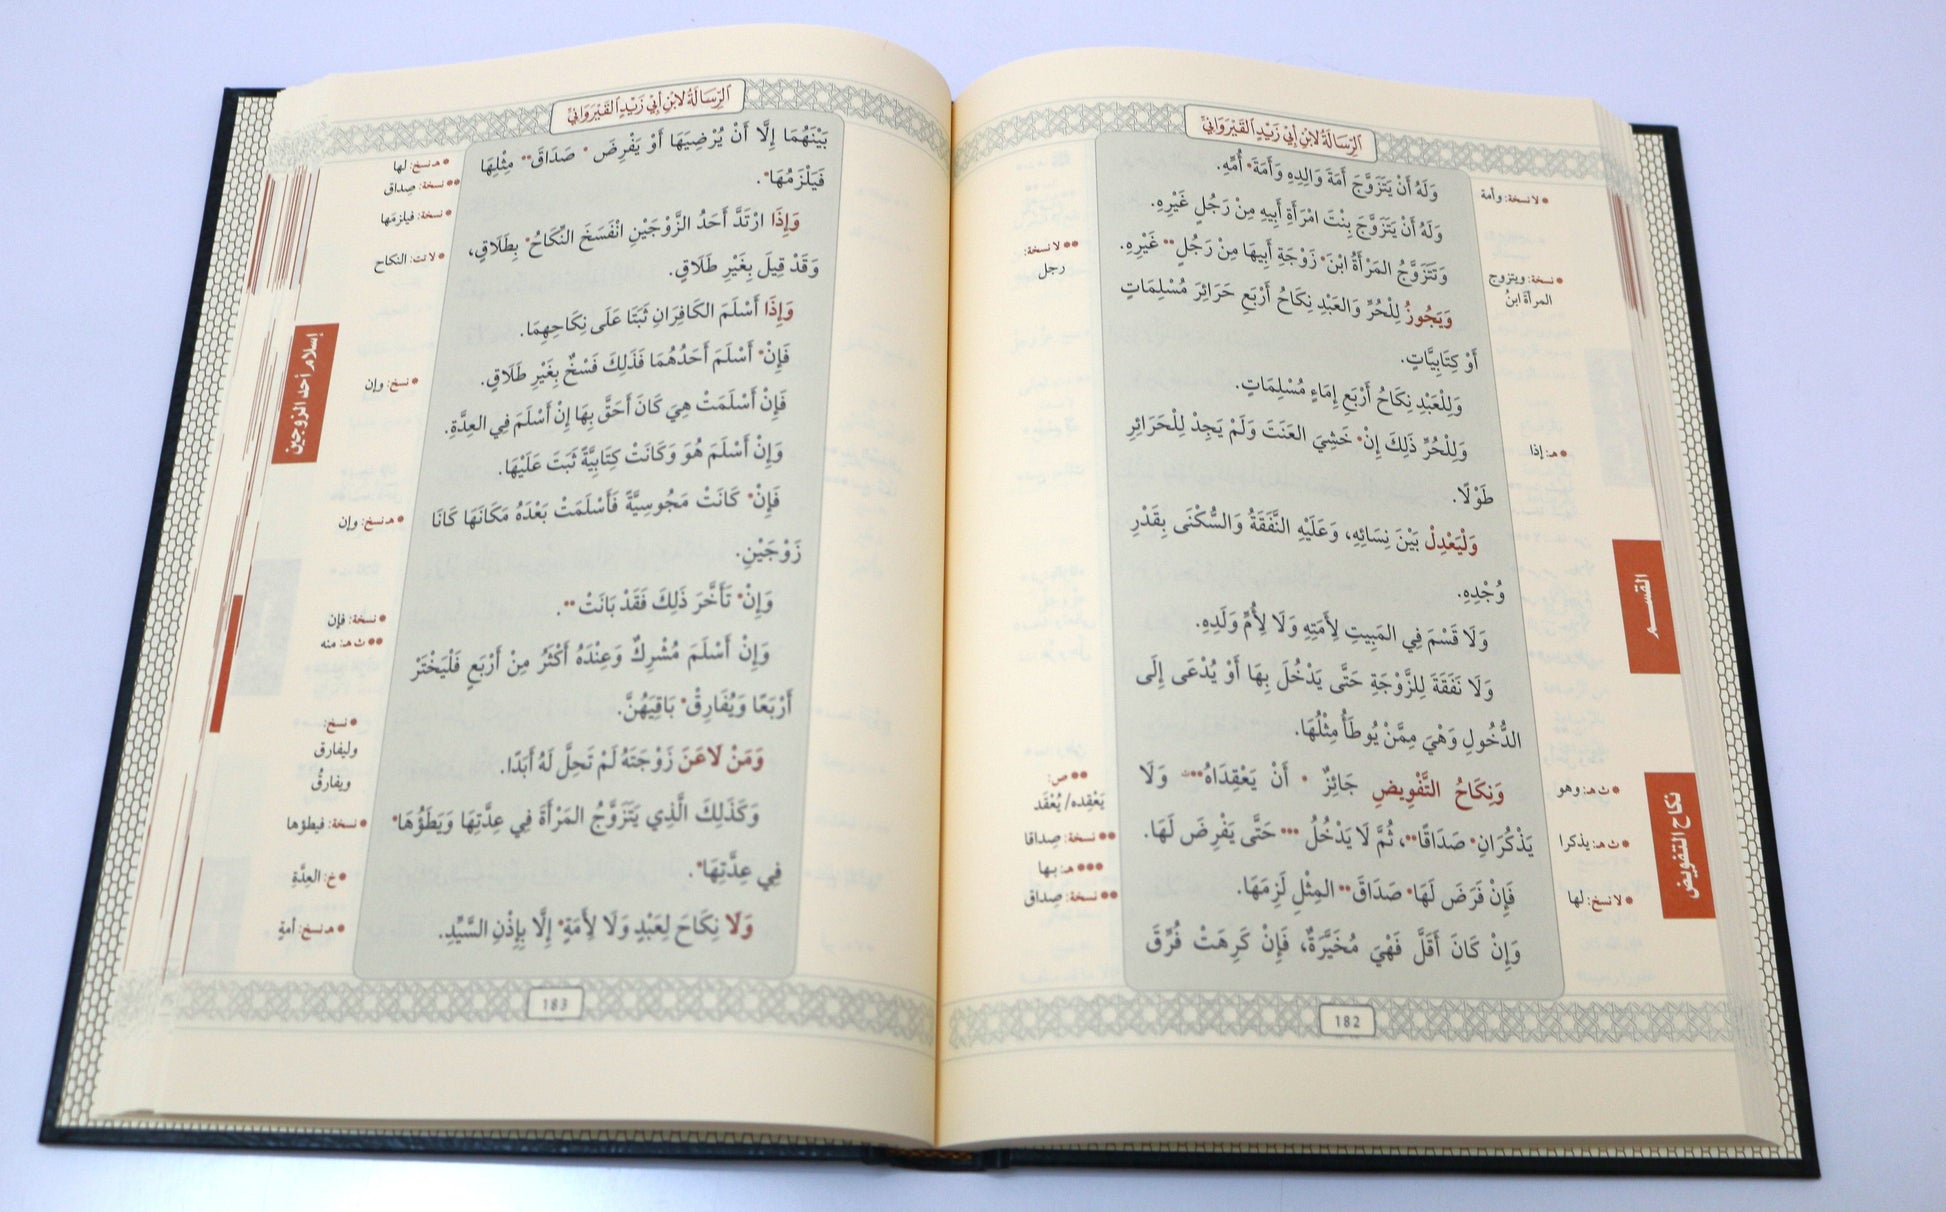 الرِّسَالَةُ لابْنِ أَبِي زَيْدٍ القَيْرَوَانِيِّ
وَلَهُ أَنْ يَتَزَوَّجَ أَمَةَ وَالِدِهِ وَأَمَةَ* أُمِّهِ.
وَلَهُ أَنْ يَتَزَوَّجَ بِنْتَ امْرَأَةِ أَبِيهِ مِنْ رَجُلٍ غَيْرِهِ.
وَتَتَزَوَّجُ المَرْأَةُ ابْنَ* زَوْجَةِ أَبِيهَا مِنْ رَجُلٍ** غَيْرِهِ.
وَيَجُوزُ لِلْحُرِّ وَالعَبْدِ نِكَاحُ أَرْبَعِ حَرَائِرَ مُسْلِمَاتٍ
أَوْ كِتَابِيَّاتٍ.
وَلِلْعَبْدِ نِكَاحُ أَرْبَعِ إِمَاءٍ مُسْلِمَاتٍ.
وَلِلْحُرِّ ذَلِكَ إِنْ* خَشِيَ العَنَتَ وَلَمْ يَجِدْ لِلْحَرَائِرِ
طَوْلًا.
وَلْيَعْدِلْ بَيْنَ نِسَائِهِ، وَعَلَيْهِ النَّفَقَةُ وَالسُّكْنَى بِقَدْرِ
وُجْدِهِ.
وَلَا قَسْمَ فِي المَبِيتِ لِأَمَتِهِ وَلَا لِأُمِّ وَلَدِهِ.
وَلَا نَفَقَةَ لِلزَّوْجَةِ حَتَّى يَدْخُلَ بِهَا أَوْ يُدْعَى إِلَى
الدُّخُولِ وَهْيَ مِمَّنْ يُوطَأُ مِثْلُهَا.
وَنِكَاحُ التَّفْوِيضِ جَائِزٌ * أَنْ يَعْقِدَاهُ** وَلَا
يَذْكُرَانِ* صَدَاقًا**، ثُمَّ لَا يَدْخُلُ *** حَتَّى يَفْرِضَ لَهَا.
فَإِنْ فَرَضَ لَهَا* صَدَاقَ** المِثْلِ لَزِمَهَا.
وَإِنْ كَانَ أَقَلَّ فَهْيَ مُخَيَّرَةٌ، فَإِنْ كَرِهَتْ فُرِّقَ
* لا نسخة: وأمة
* نسخة: ويتزوج
المرأةَ ابنُ
* هـ: إذا
* ث هـ: وهو
* ث هـ: يذكرا
* لا نسخ: لها
** لا نسخة:
رجل
** ص:
يَعْقِده/ يُعْقَد
** نسخة: صِداقا
*** هـ: بها
** نسخة: صِداق
القسم
نكاح التفويض
182
الرِّسَالَةُ لابْنِ أَبِي زَيْدٍ القَيْرَوَانِيِّ
بَيْنَهُمَا إِلَّا أَنْ يُرْضِيَهَا أَوْ يَفْرِضَ * صَدَاقَ** مِثْلِهَا
فَيَلْزَمُهَا*.
وَإِذَا ارْتَدَّ أَحَدُ الزَّوْجَيْنِ انْفَسَخَ النِّكَاحُ* بِطَلَاقٍ،
وَقَدْ قِيلَ بِغَيْرِ طَلَاقٍ.
وَإِذَا أَسْلَمَ الكَافِرَانِ ثَبَتَا عَلَى نِكَاحِهِمَا.
فَإِنْ* أَسْلَمَ أَحَدُهُمَا فَذَلِكَ فَسْخٌ بِغَيْرِ طَلَاقٍ.
فَإِنْ أَسْلَمَتْ هِيَ كَانَ أَحَقَّ بِهَا إِنْ أَسْلَمَ فِي العِدَّةِ.
وَإِنْ أَسْلَمَ هُوَ وَكَانَتْ كِتَابِيَّةً ثَبَتَ عَلَيْهَا.
فَإِنْ* كَانَتْ مَجُوسِيَّةً فَأَسْلَمَتْ بَعْدَهُ مَكَانَهَا كَانَا
زَوْجَيْنِ.
وَإِنْ* تَأَخَّرَ ذَلِكَ فَقَدْ بَانَتْ **.
وَإِنْ أَسْلَمَ مُشْرِكٌ وَعِنْدَهُ أَكْثَرُ مِنْ أَرْبَعٍ فَلْيَخْتَرْ
أَرْبَعًا وَيُفَارِقْ* بَاقِيَهُنَّ.
وَمَنْ لاعَنَ زَوْجَتَهُ لَمْ تَحِلَّ لَهُ أَبَدًا.
وَكَذَلِكَ الَّذِي يَتَزَوَّجُ المَرْأَةَ فِي عِدَّتِهَا وَيَطَؤُهَا*
فِي عِدَّتِهَا*.
وَلَا نِكَاحَ لِعَبْدٍ وَلَا لِأَمَةٍ* إِلَّا بِإِذْنِ السَّيِّدِ.
* هـ نسخ: لها
** نسخة: صِداق
* نسخة: فيلزمَها
* لا ت: النكاح
* نسخ: وإن
* هـ نسخ: وإن
* نسخة: فإن
** ث هـ: منه
* نسخ:
وليفارق
ويفارقُ
* نسخة: فيطؤها
* خ: العِدَّةِ
* هـ نسخ: أمةٍ
إسلام أحد الزوجين
183